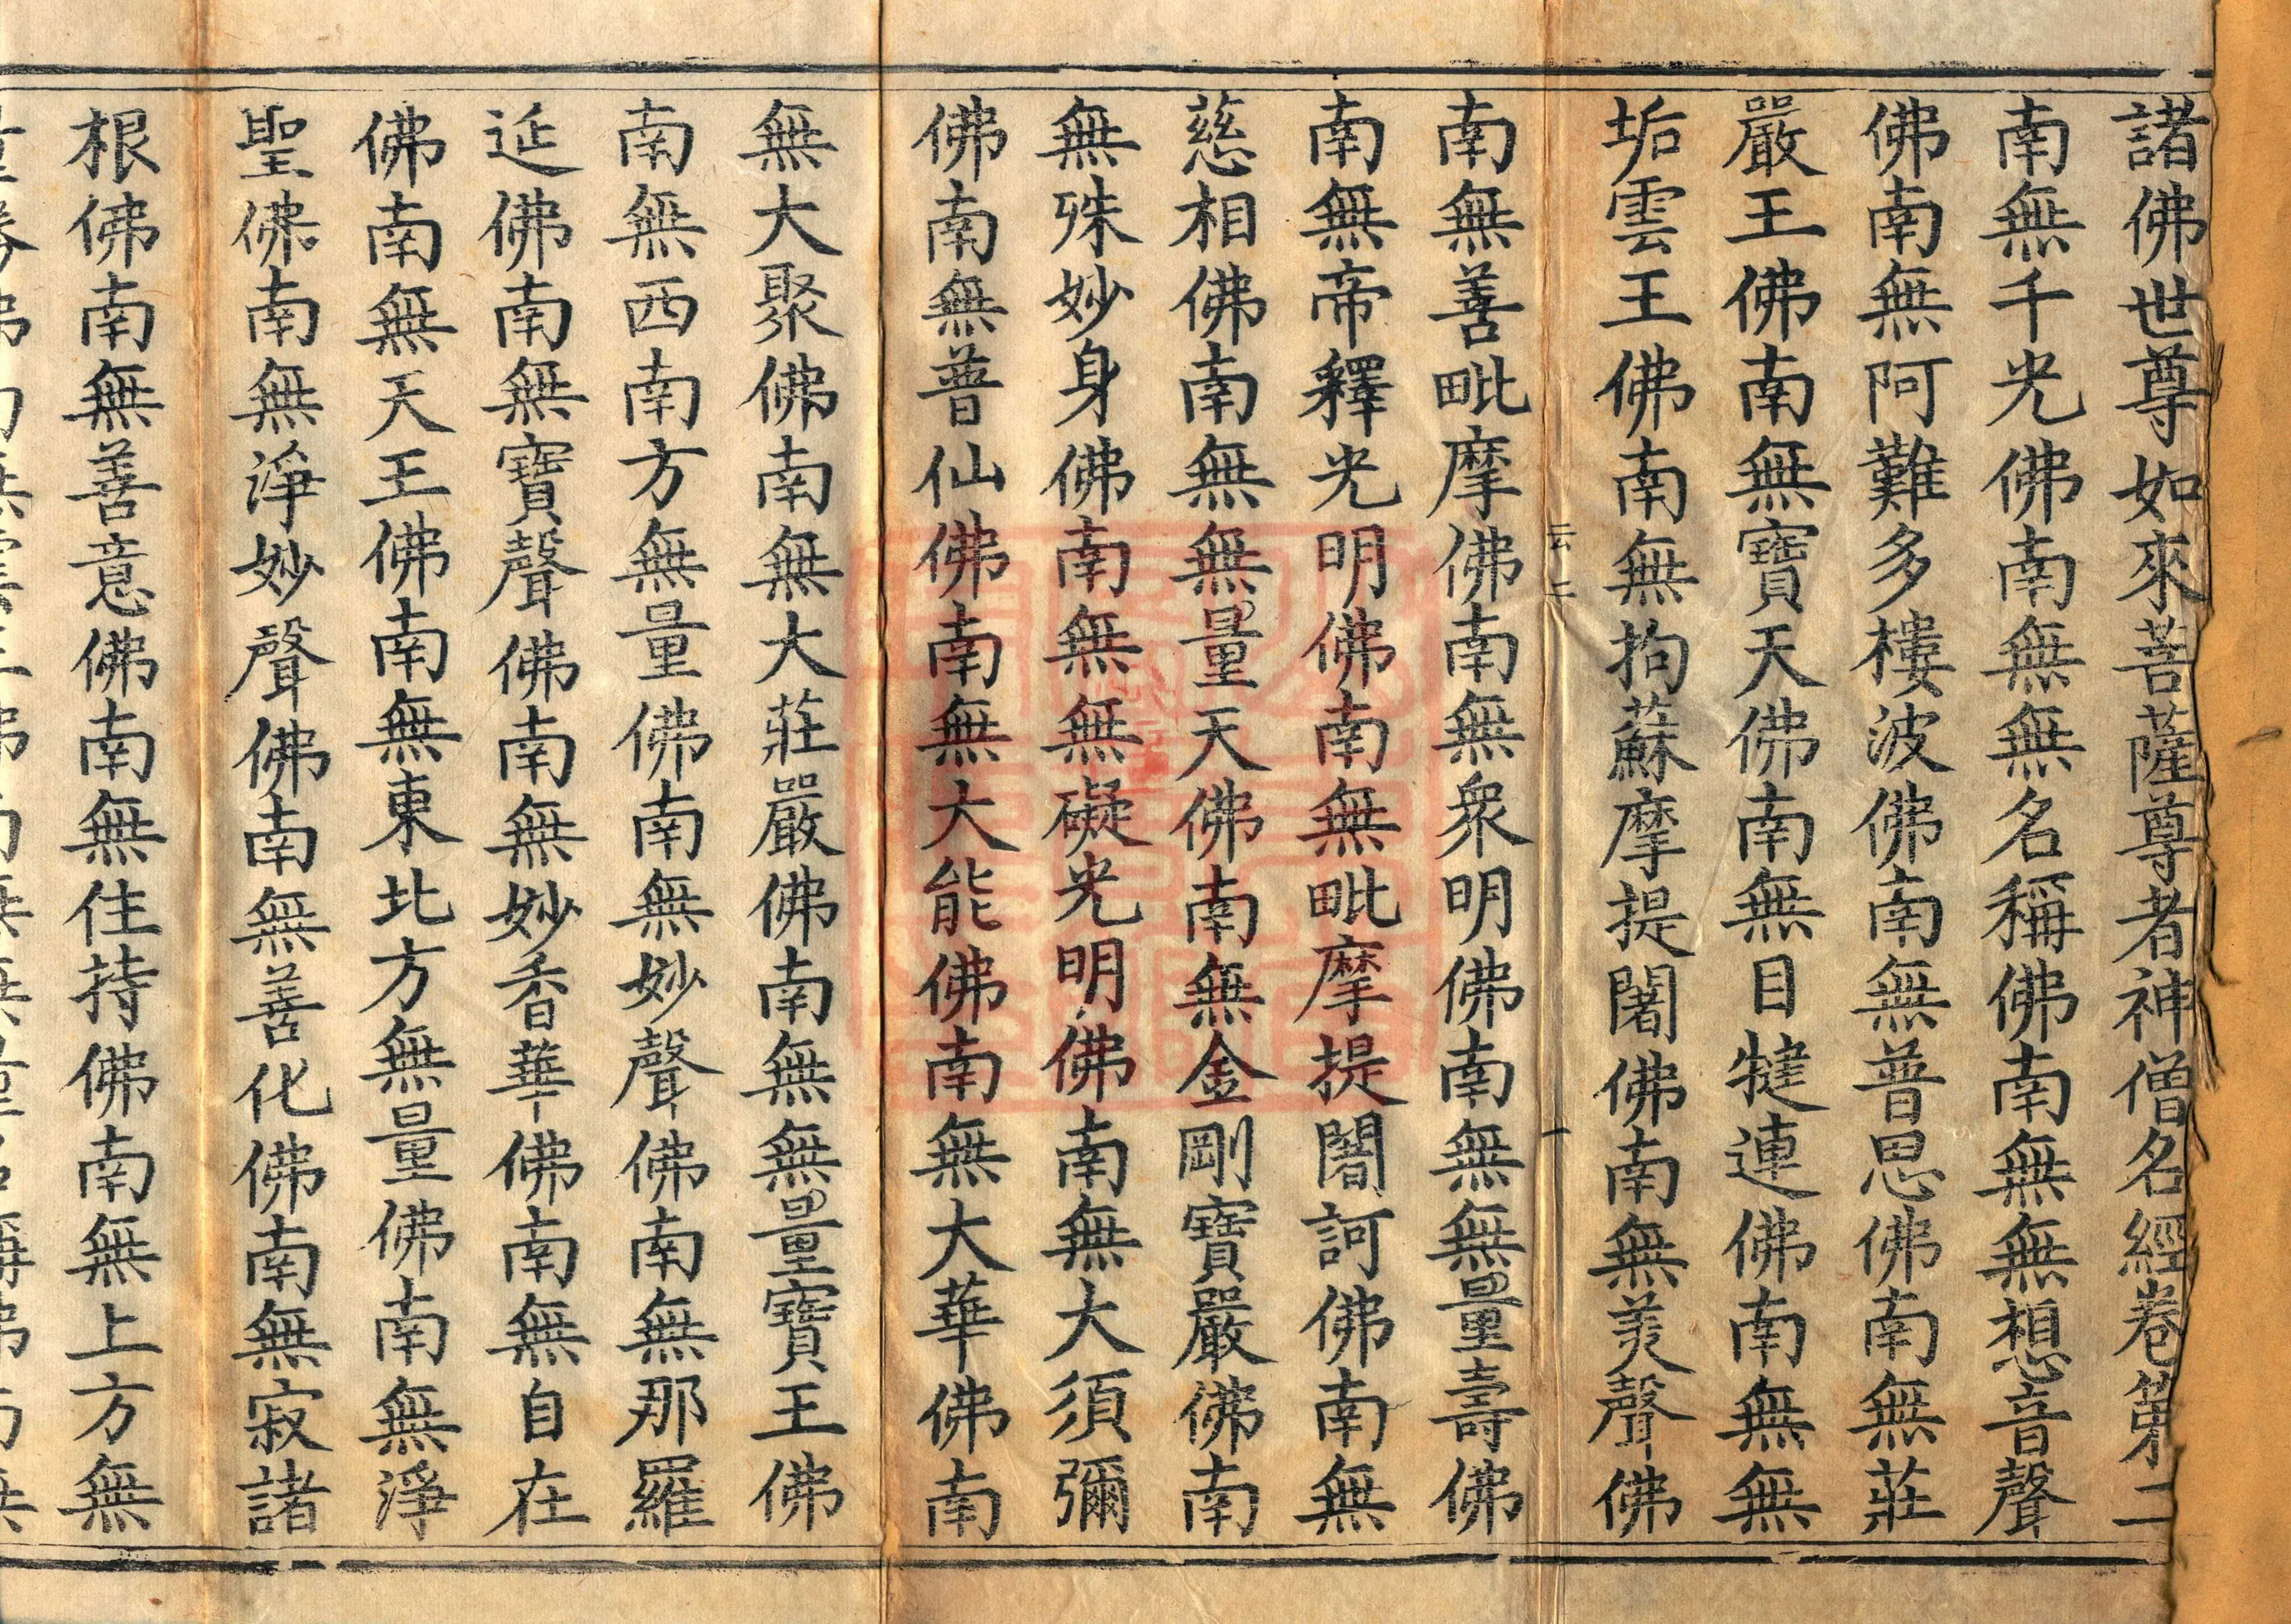 諸佛世尊如來菩薩尊者神僧名經卷第二
南無千光佛南無無名稱佛南無無想音聲
佛南無阿難多樓波佛南無普思佛南無莊
嚴王佛南無寶天佛南無目犍連佛南無無
垢雲王佛南無拘蘇摩提闍佛南無美聲佛
云二
一
南無善毗摩佛南無衆明佛南無無量壽佛
南無帝釋光明佛南無毗摩提闍訶佛南無
慈相佛南無無量天佛南無金剛寶嚴佛南
無殊妙身佛南無無礙光明佛南無大須彌
佛南無普仙佛南無大能佛南無大華佛南
無大聚佛南無大莊嚴佛南無無量寶王佛
南無西南方無量佛南無妙聲佛南無那羅
延佛南無寶聲佛南無妙香華佛南無自在
佛南無天王佛南無東北方無量佛南無淨
聖佛南無淨妙聲佛南無善化佛南無寂諸
根佛南無善意佛南無住持佛南無上方無